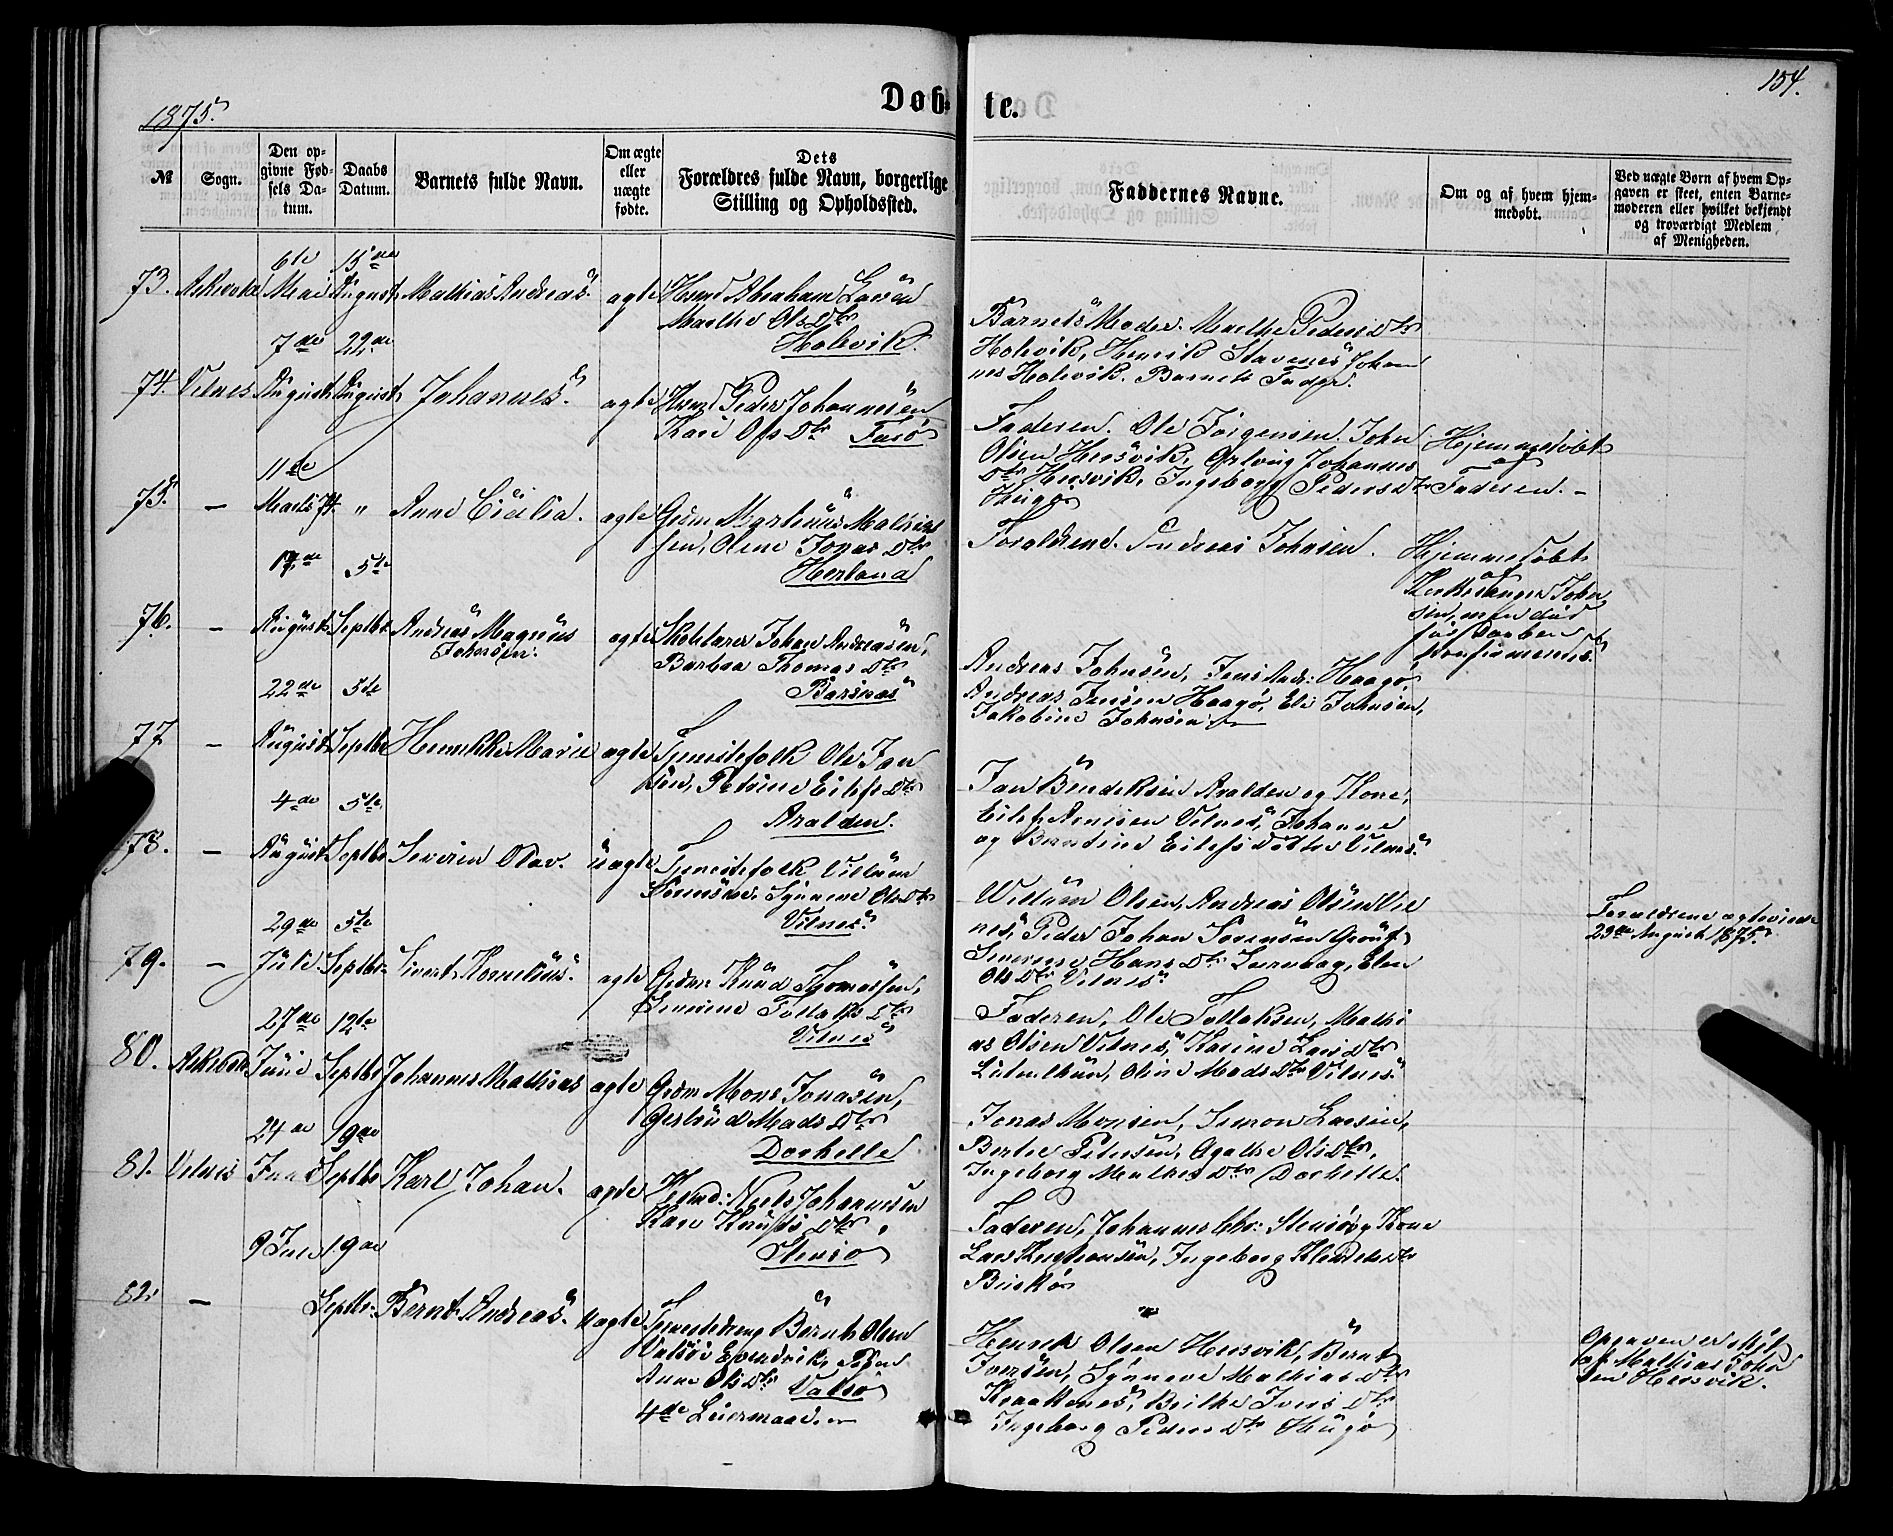 1875.
Døb-
te.
154.
№
Sogn.
Den op-
givne Fød-
sels Da-
tum.
Daabs
Datum.
Barnets fulde Navn.
Om ægte
eller
uægte
fødte.
Dets
Forældres fulde Navn, borgerlige
Stilling og Opholdssted.
Faddernes Navne.
Om og af hvem hjem-
medøbt.
Ved uægte Børn af hvem Op-
gaven er skeet, enten Barne-
moderen eller hvilket bekjendt
og troværdigt Medlem
af Menigheden.
6te 15de
73. Askevold Mai August Mathias Andreas. ægte Hsmd Abraham Larsen
Marthe Ols Dtr
Holevik.
Barnets Moder. Marthe Peders Dtr
Holevik, Henrik Stavenes Johan
nes Holevik. Barnets Fader.
7de 22de
74. Vilnes August August Johannes. ægte Hsmd Peder Johannesen
Kari Ols Dtr
Faderen. Ole Jørgensen. John
Olsen Hersvik, Johannes
Dtr Hersvik, Ingeborg Peders Dtr
Hugø
Hjemmedøbt
af
Faderen. –
11te
75. – Marts 74 " Anne Cicilia. ægte Grdm Martinus Mathias
sen, Oline Jonas Dtr
Herland
Forældrene. Andreas Johnsen.
Hjemmedøbt
af
Kirkesanger John
sen, men død
før Daaben
konfirmeredes.
17de 5te
76. – August Septbr Andreas Magnus
Johnsen. ægte Skolelærer Johan Andreasen,
Barbra Thomas Dtr
Andreas Johnsen, Jens Andr: Haagø
Andreas Jensen Haagø, Eli Johnsen,
Jakobine Johnsen
22de 5te
77 – August Septbr Henrikke Marie ægte Tjenestefolk Ole Jan
sen, Petrine Eilefs Dtr
Aralden.
Jan Bendiksen Aralden og Kone,
Eilef Arnesen Vilnes, Johanne
og Berntine Eilefs Dotter Vilnes.
4de 5te
78. – August Septbr Severin Olav. uægte Tjenestefolk Villum
Synneve Ols Dtr
Vilnes.
Willum Olsen, Andreas Olsen Vil
nes, Peder Johan Sørensen
Severine Hans Dtr Elen
Ols Dtr Vilnes.
Forældrene ægteviede
29de August 1875.
29de 5te
79. – Juli Septbr Sivert Kornelius. ægte Grdm: Knud Thomassen,
Severine Tollaks Dtr
Vilnes
Faderen, Ole Tollaksen, Mathi
as Olsen Vilnes, Karine Lars Dtr
Oline Mads Dtr Vilnes.
27de 12te
80. Askevold Juni Septbr Johannes Mathias ægte Grdm Mons Jonasen,
Gertrud Mads Dtr
Dorhelle
Jonas Monsen, Simon Larsen,
Bertre Petersen, Agathe Ols Dtr,
Ingeborg Mathias Dtr Dorhelle.
24de 19de
81. Vilnes Juni Septbr Karl Johan. ægte Hsmd: Niels Johannesen
Kari Knuds Dtr,
Stensø
Faderen, Johannes Chr: Stensø og Kone
Lars Kristiansen, Ingeborg Klaudes Dtr
Buskø
9 Juli 19de
82. – Septbr. Bernt Andreas. uægte Tjenestedreng Bernt Olsen
Anne Ols Dtr Valsø
4de Leiermaal
Henrik Olsen Hersvik, Bernt
Iversen, Synneve Mathias Dtr
Kraakenes, Brithe Ivers Dtr
Ingeborg Peders Dtr Hugø
Opgaven er skeet
af Mathias John
sen Hersvik.